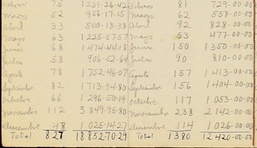 75 1231-26-42 81 729-00-00
Março 52 956-17-15 Março 62 558-00-00
Abril 33 500-13-38 Abril 92 828-00-00
Maio 63 1225-57-57 Maio 53 477-00-00
Junho 68 1474-44-18 Junho 150 1350-00-00
Julho 53 906-02-64 Julho 90 810-00-00
Agosto 78 1752-46-07 Agosto 157 1413-00-00
Setembro 82 1713-94-80 Setembro 156 1404-00-00
Outubro 66 1296-50-19 Outubro 117 1053-00-00
Novembro 112 3849-95-80 Novembro 238 2142-00-00
Dezembro 48 1025-14-27 Dezembro 114 1026-00-00
Total 827 18852-70-29 Total 1380 12420-00-00